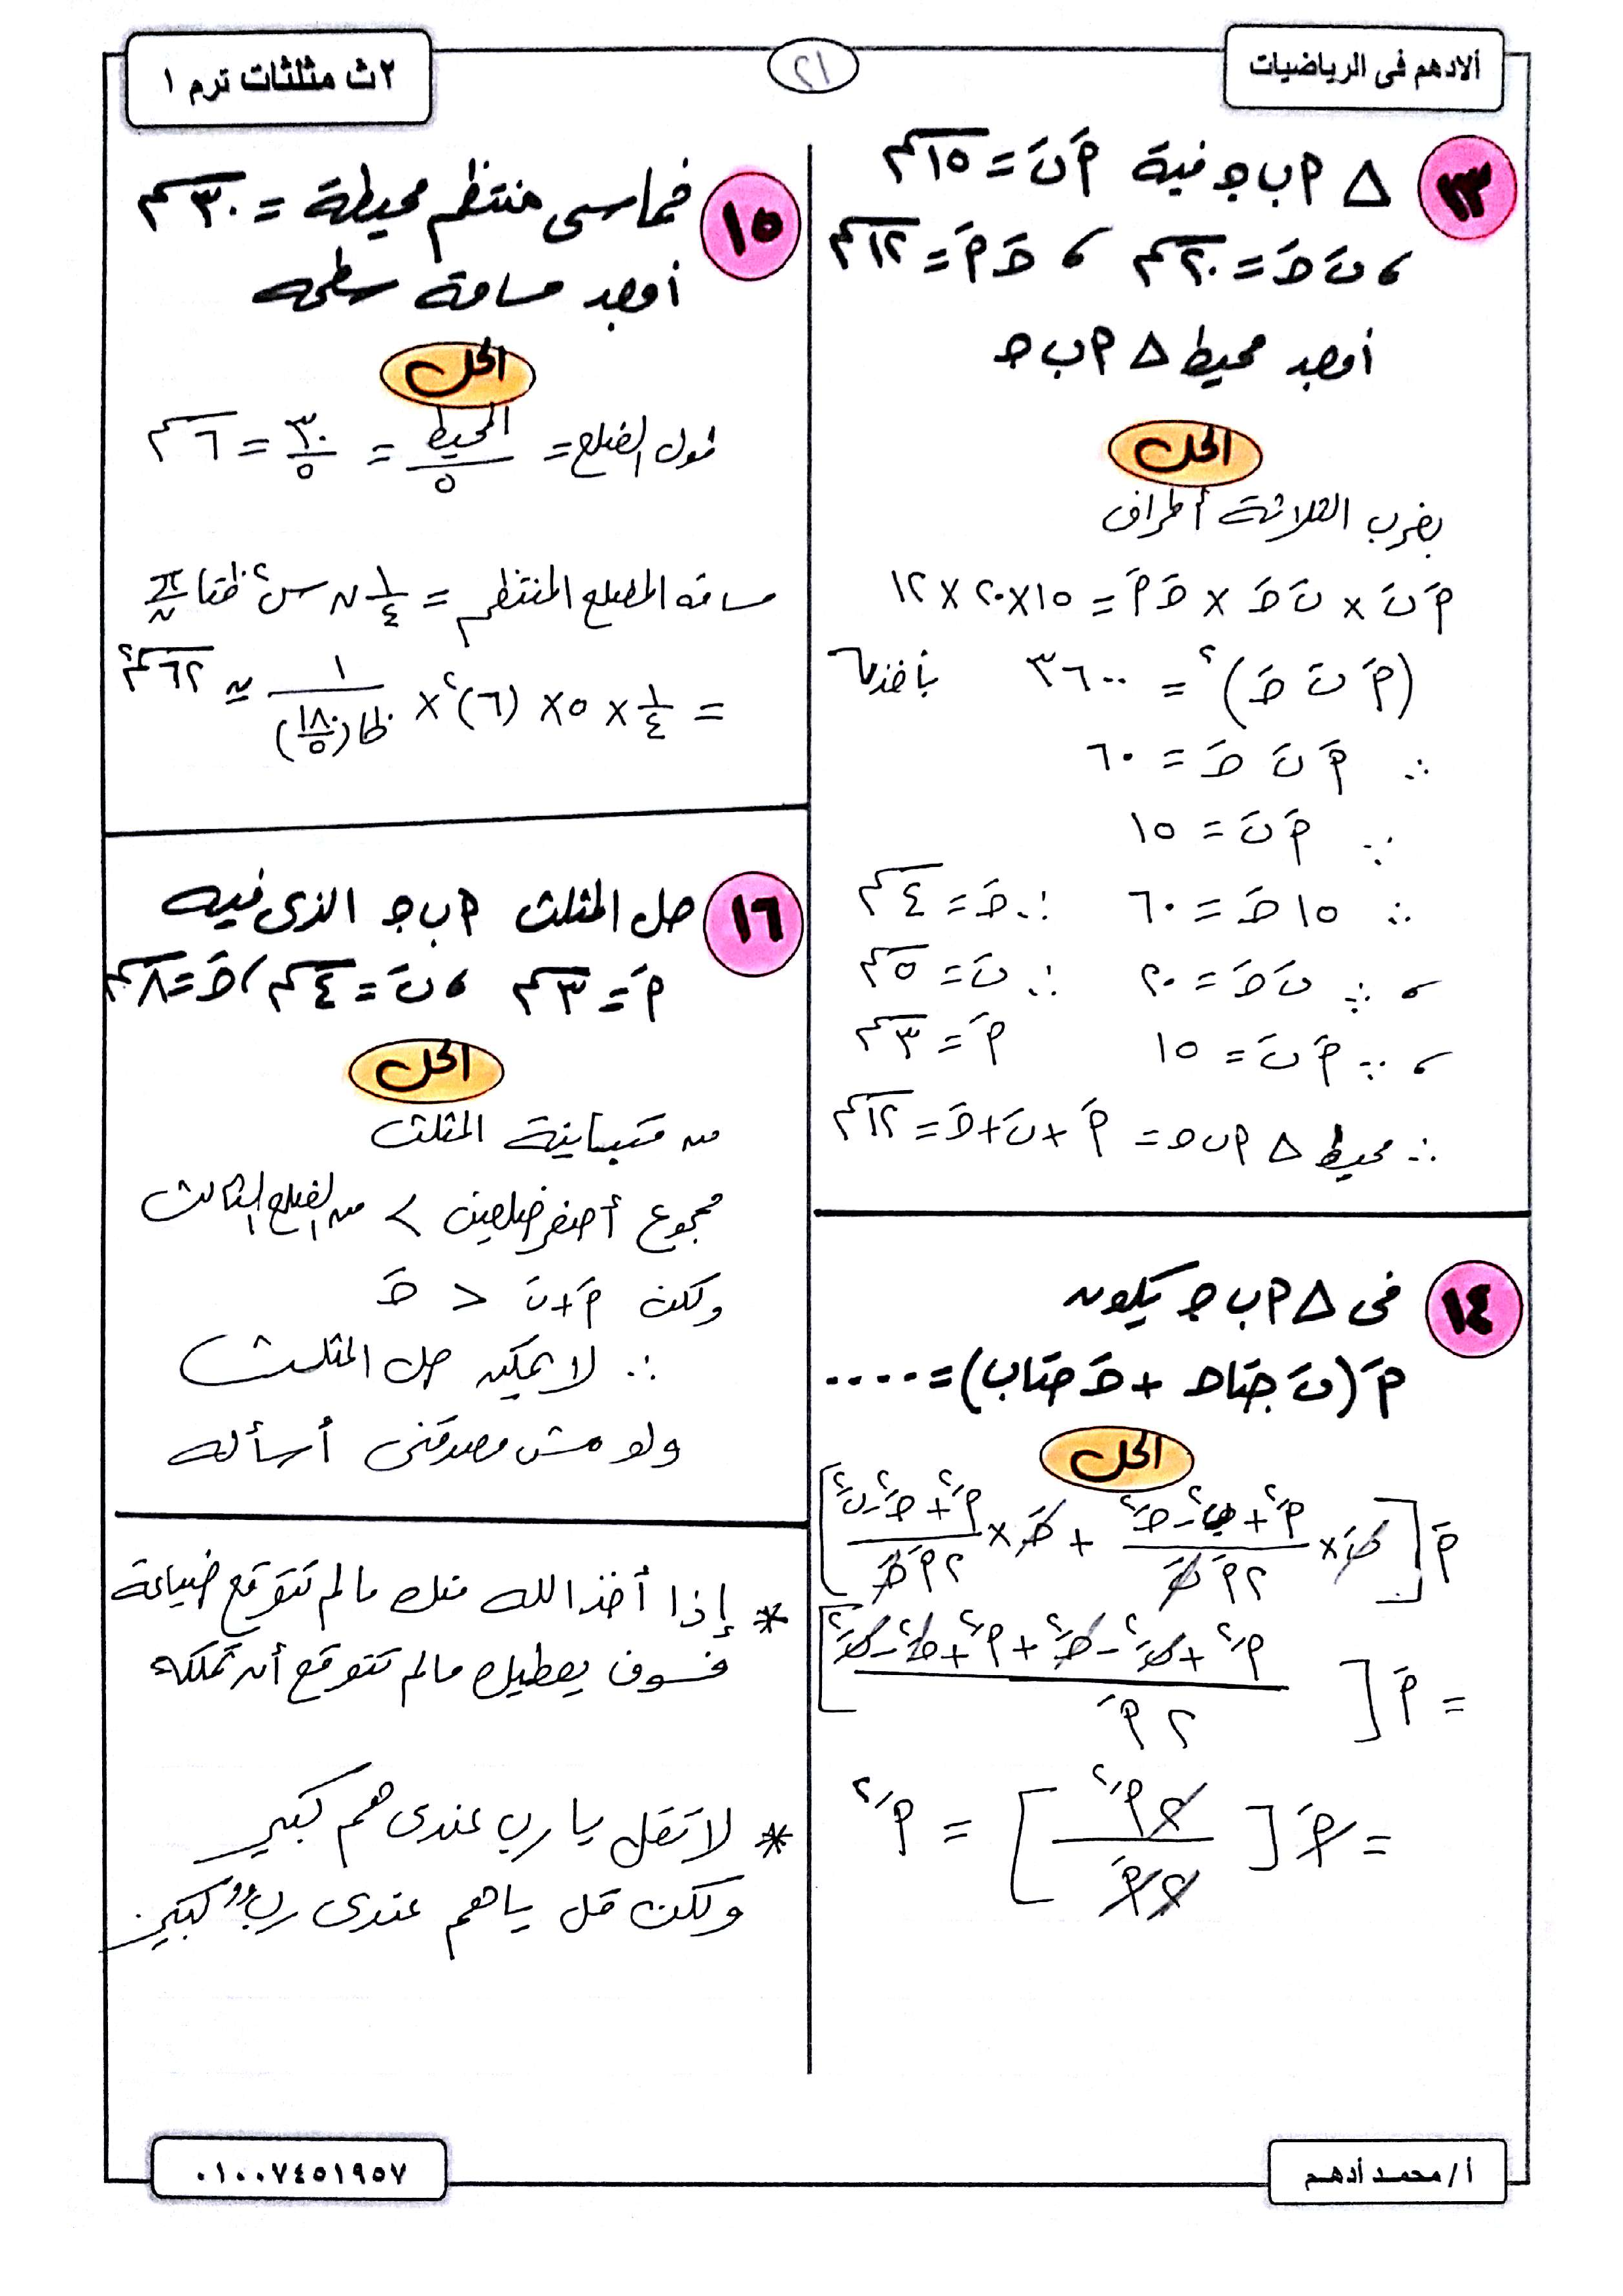 ألادهم فى الرياضيات
٢١
٢ث مثلثات ترم ١
١٣ △ ٢ ب جـ فية ٢َ بَ = ١٥ سم
، بَ جـَ = ٢٠ سم ، جـَ ٢َ = ١٢ سم
أوجد محيط △ ٢ ب جـ
الحل
بضرب الثلاثة أطراف
٢َ بَ × بَ جـَ × جـَ ٢َ = ١٥ × ٢٠ × ١٢
(٢َ بَ جـَ)² = ٣٦٠٠ بأخذ √
∴ ٢َ بَ جـَ = ٦٠
∵ ٢َ بَ = ١٥
∴ ١٥ جـَ = ٦٠ ∴ جـَ = ٤ سم
، ∵ بَ جـَ = ٢٠ ∴ بَ = ٥ سم
، ∵ ٢َ بَ = ١٥ ٢َ = ٣ سم
∴ محيط △ ٢ ب جـ = ٢َ + بَ + جـَ = ١٢ سم
١٤ فى △ ٢ ب جـ يكون
٢َ (بَ جتاجـ + جـَ جتاب) = ....
الحل
٢َ [بَ × (٢َ² + بَ² - جـَ²)/(٢ ٢َ بَ) + جـَ × (٢َ² + جـَ² - بَ²)/(٢ ٢َ جـَ)]
= ٢َ [(٢َ² + بَ² - جـَ² + ٢َ² + جـَ² - بَ²)/(٢ ٢َ)]
= ٢َ [(٢ ٢َ²)/(٢ ٢َ)] = ٢َ²
١٥ خماسى منتظم محيطة = ٣٠ سم
أوجد مساحة سطحه
الحل
طول الضلع = المحيط/٥ = ٣٠/٥ = ٦ سم
مساحة المضلع المنتظم = ١/٤ ن س² ظتا π/ن
= ١/٤ × ٥ × (٦)² × ١/ظا(١٨٠/٥) ≃ ٦٢ سم²
١٦ حل المثلث ٢ ب جـ الذى فيه
٢َ = ٣ سم ، بَ = ٤ سم ، جـَ = ٨ سم
الحل
من متباينة المثلث
مجموع أصغر ضلعين > من الضلع الثالث
ولكن ٢َ + بَ < جـَ
∴ لا يمكن حل المثلث
ولو مش مصدقنى أسأله
* إذا أخذ الله منك مالم تتوقع ضياعة
فسوف يعطيك مالم تتوقع أن تملكه
* لا تقل يا رب عندى هم كبير
ولكن قل ياهم عندى ربٌ كبير
أ/ محمد أدهم
٠١٠٠٧٤٥١٩٥٧